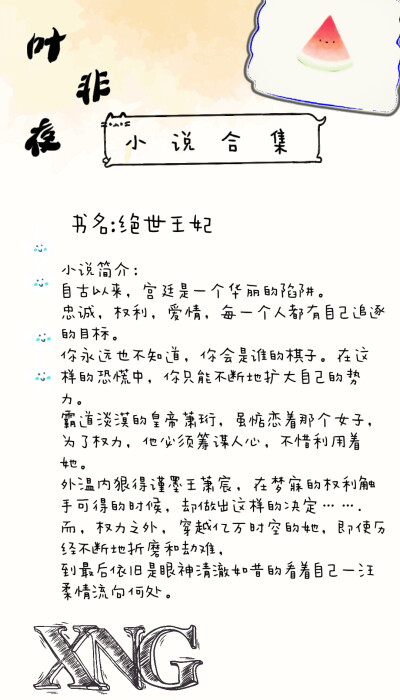 叶非夜
小说合集
书名:绝世王妃
小说简介:
自古以来,宫廷是一个华丽的陷阱。
忠诚,权利,爱情,每一个人都有自己追逐
的目标。
你永远也不知道,你会是谁的棋子。在这
样的恐慌中,你只能不断地扩大自己的势
力。
霸道淡漠的皇帝萧珩,虽惦恋着那个女子,
为了权力,他必须筹谋人心,不惜利用着
她。
外温内狠得谨墨王萧宸,在梦寐的权利触
手可得的时候,却做出这样的决定… ….
而,权力之外,穿越亿万时空的她,即使历
经不断地折磨和劫难,
到最后依旧是眼神清澈如昔的看着自己一汪
柔情流向何处。
XNG